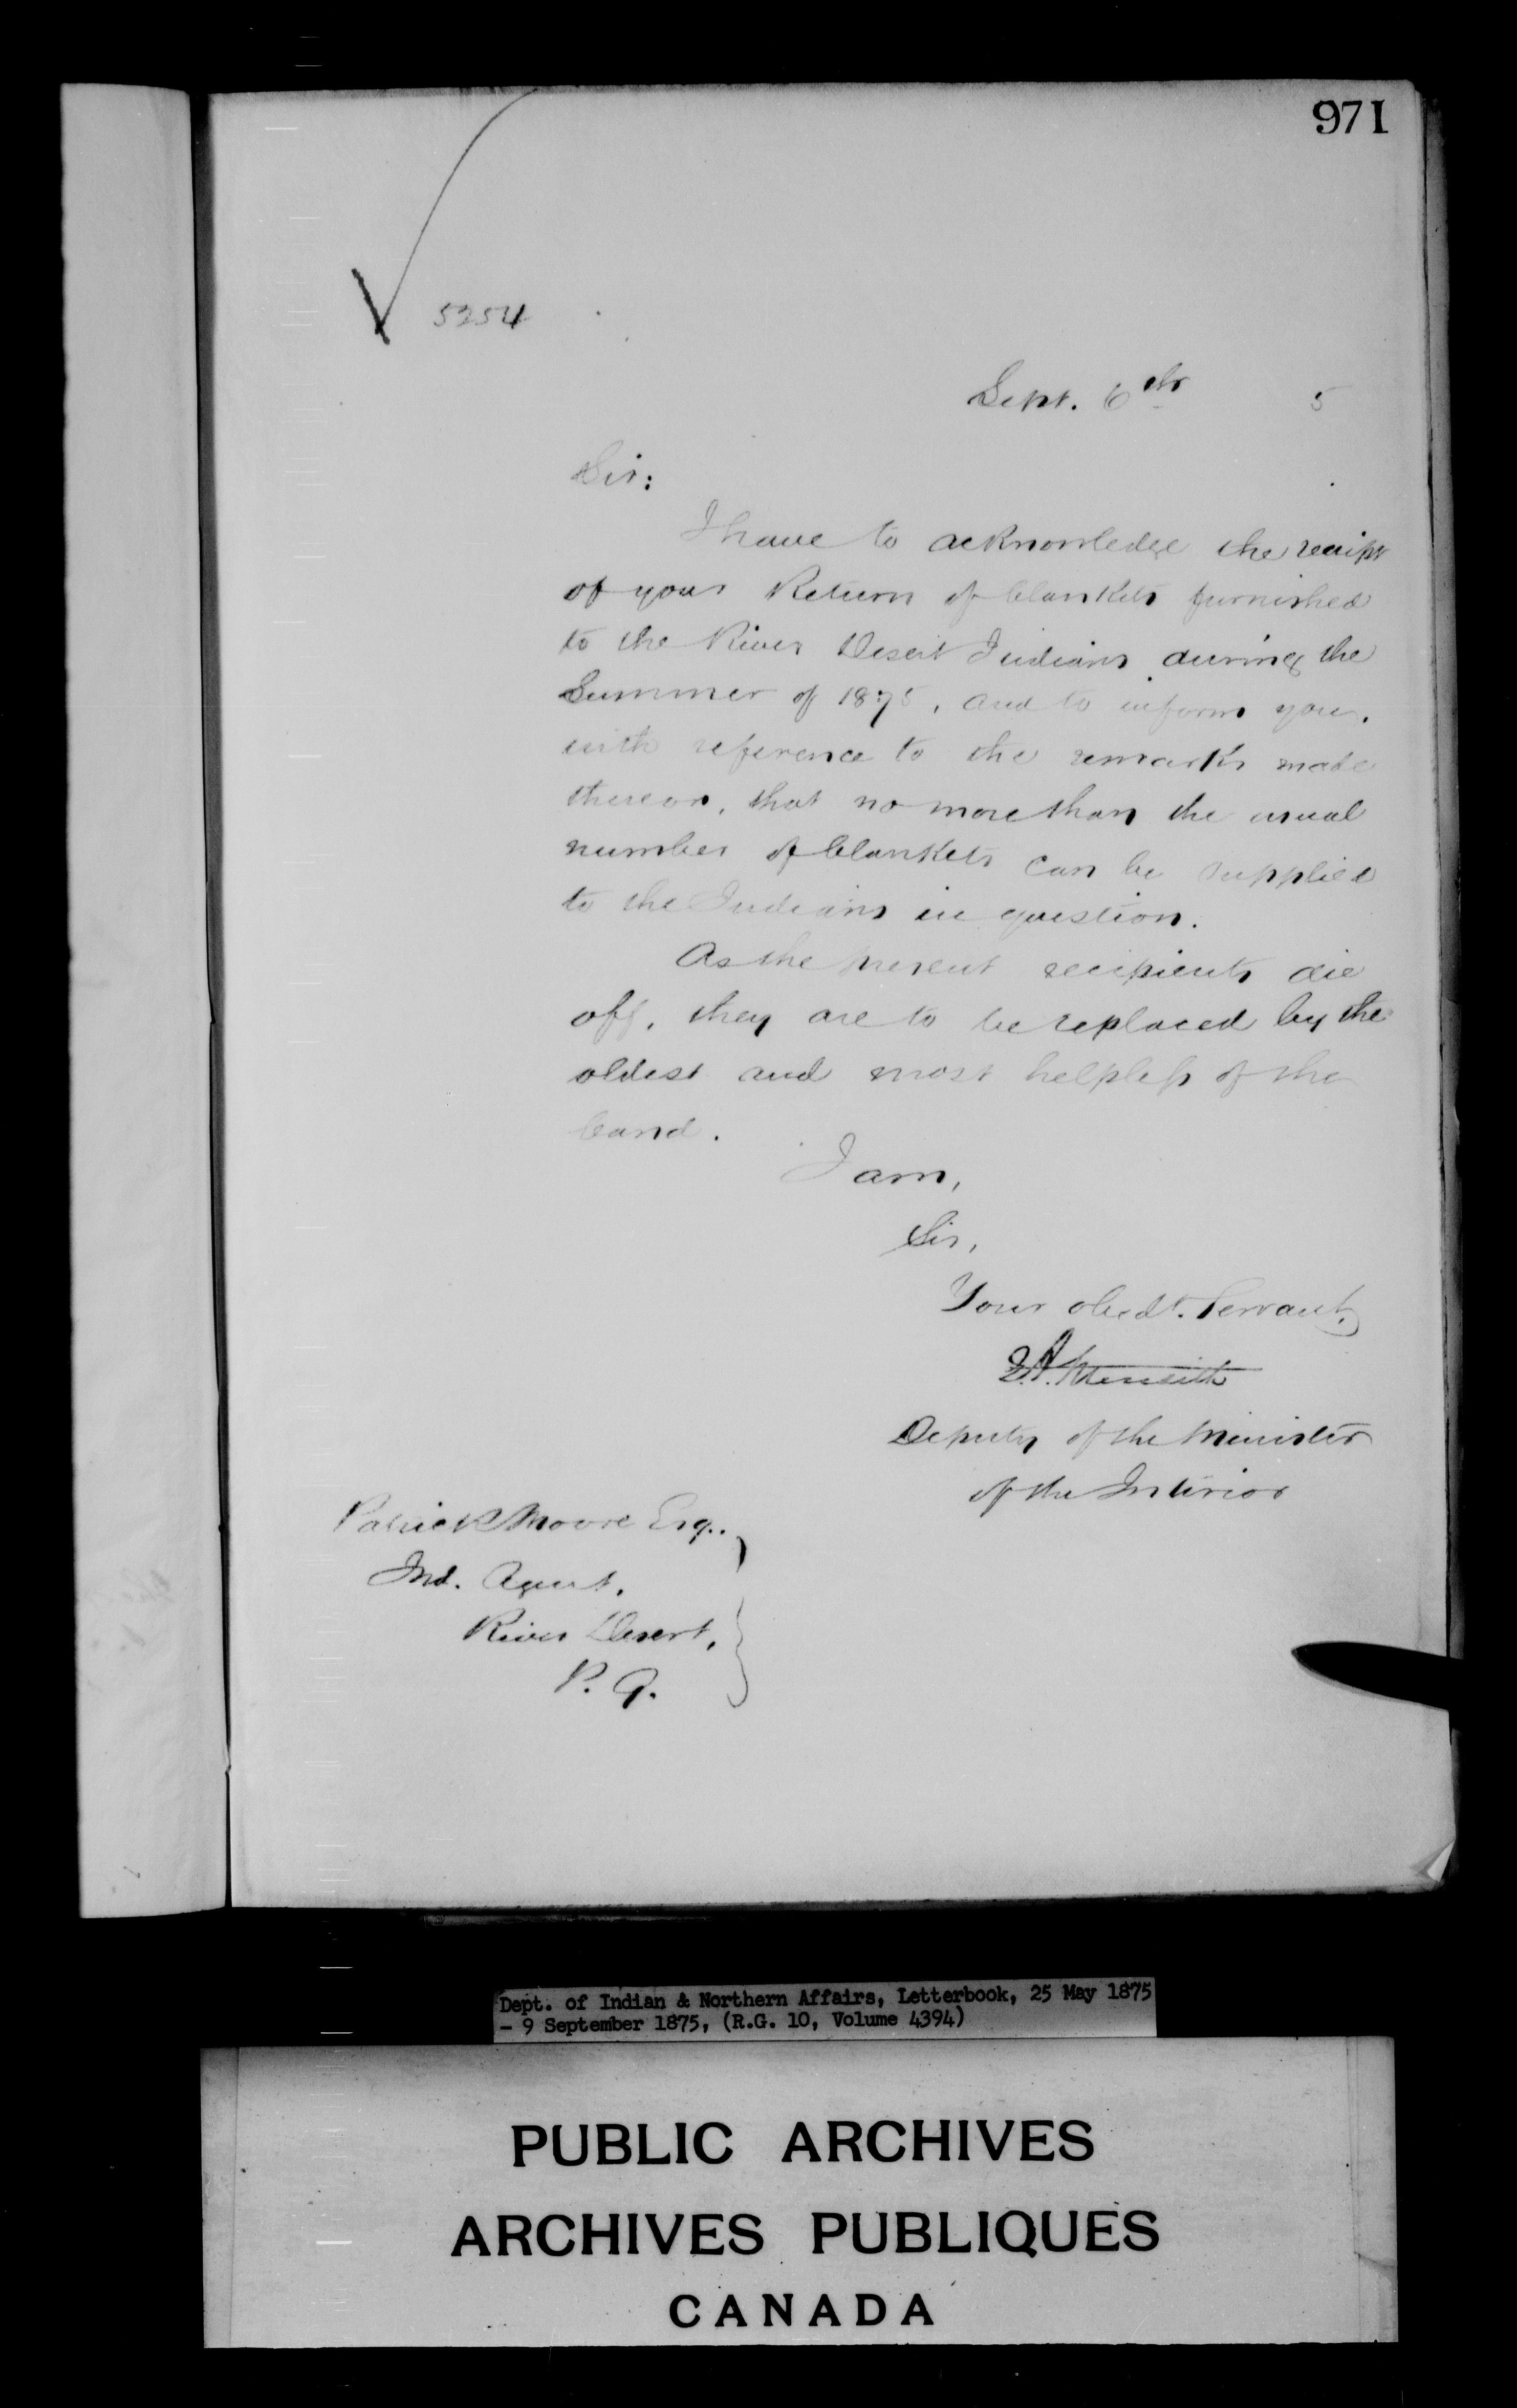 971
5254
Sept. 6th 5
Sir:
I have to acknowledge the receipt
of your Return of blankets furnished
to the River Desert Indians during the
Summer of 1875, and to inform you,
with reference to the remarks made
thereon, that no more than the usual
number of blankets can be supplied
to the Indians in question.
As the present recipients die
off, they are to be replaced by the
oldest and most helpless of the
band.
I am,
Sir,
Your obedt. Servant,
E.A. Meredith
Deputy of the Minister
of the Interior
Patrick Moore Esq.,
Ind. Agent,
River Desert,
P.Q.
Dept. of Indian & Northern Affairs, Letterbook, 25 May 1875
- 9 September 1875, (R.G. 10, Volume 4394)
PUBLIC ARCHIVES
ARCHIVES PUBLIQUES
CANADA